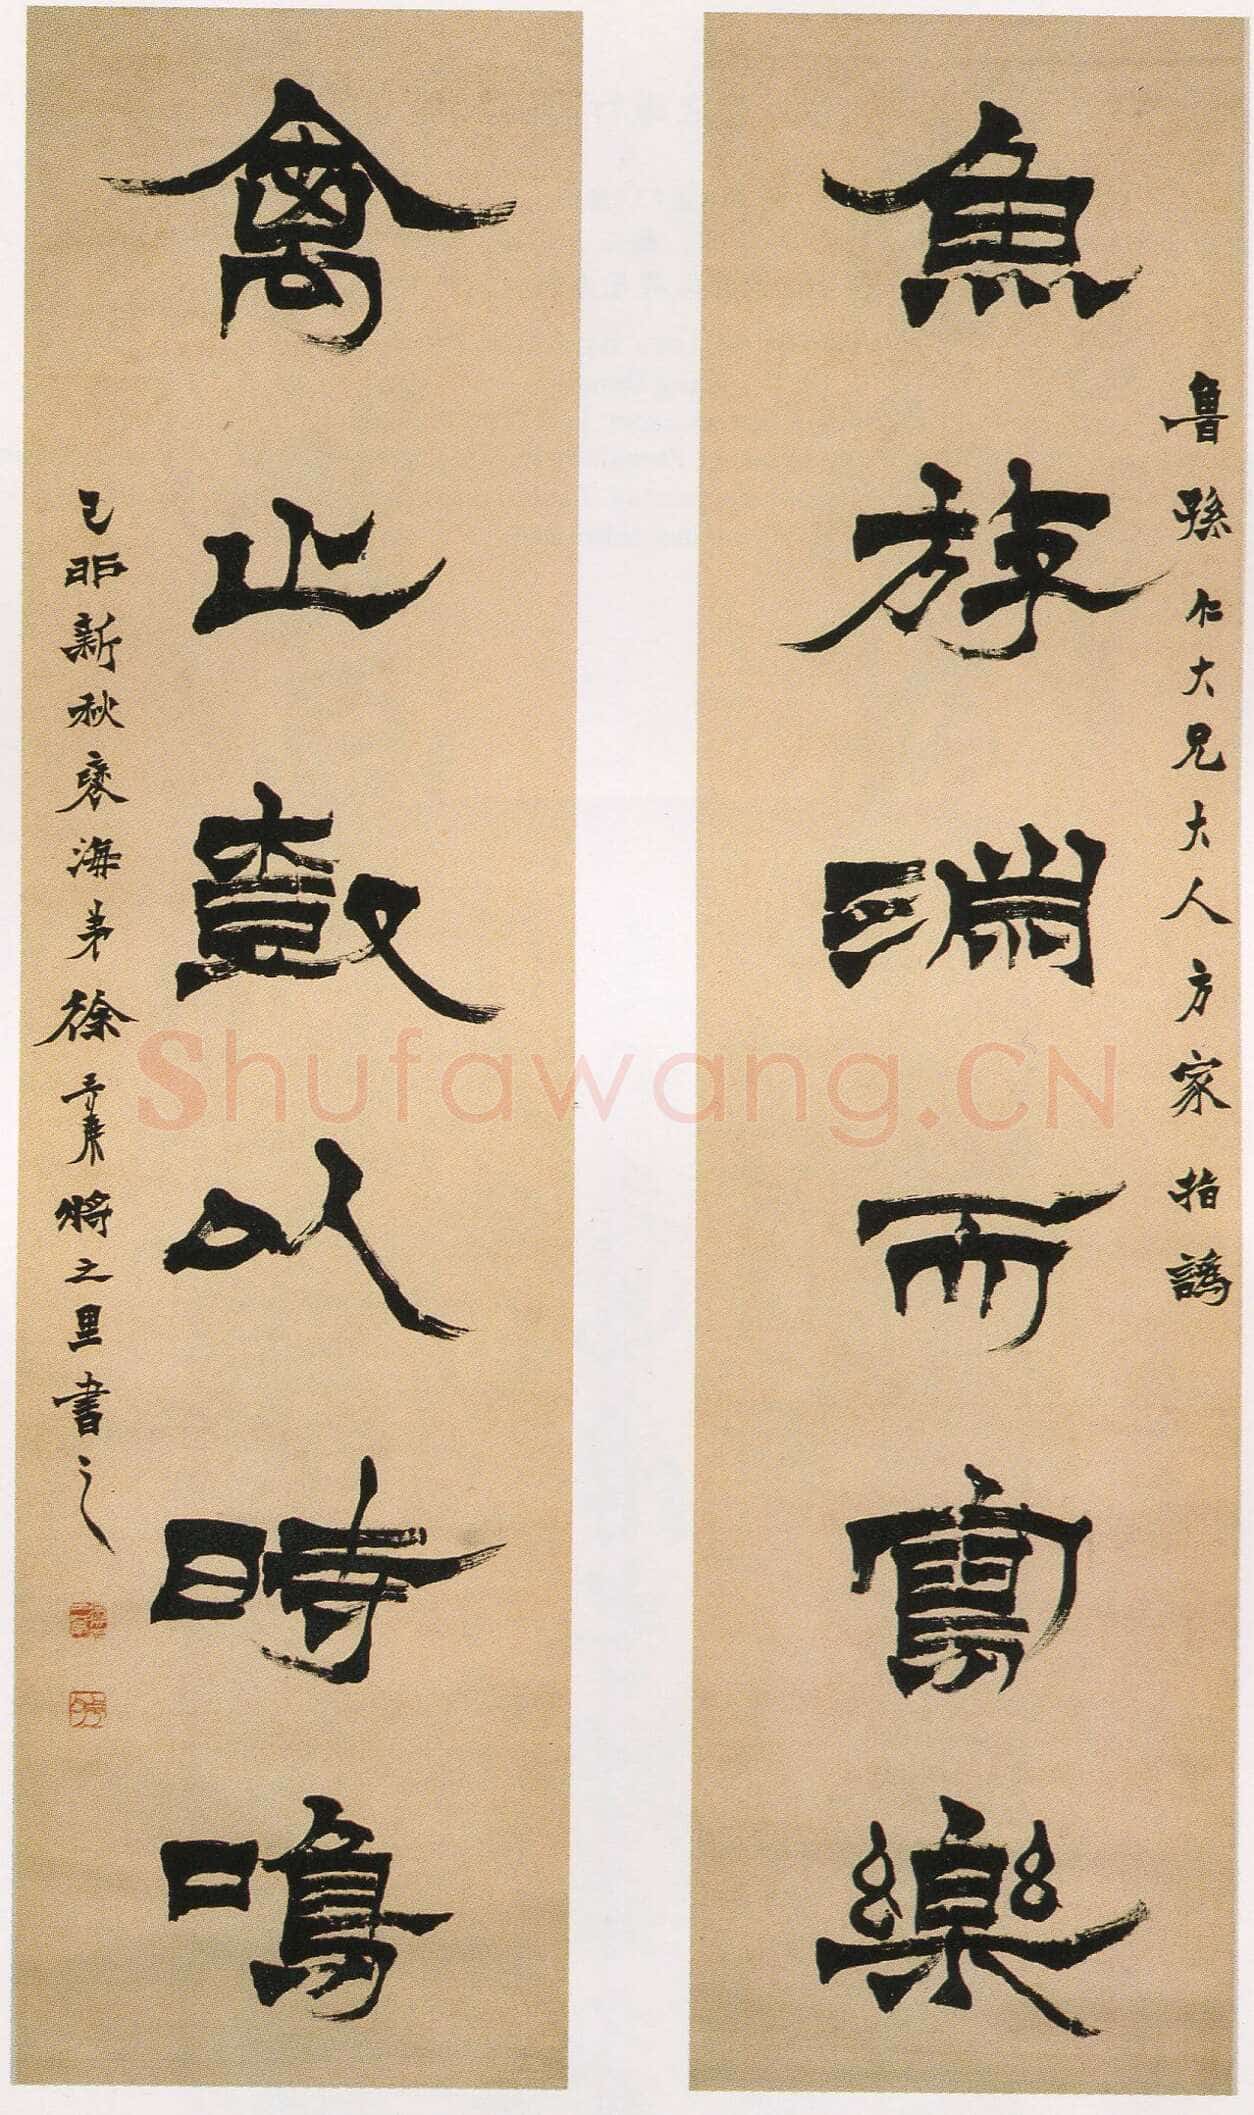 魚斿淵而寫樂
魯孫仁大兄大人方家指譌
禽止樹以時鳴
己卯新秋褎海弟徐三庚將之里書之
Shufawang.CN